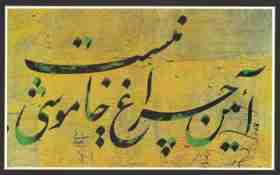 آئین چراغ خاموشی
نیست